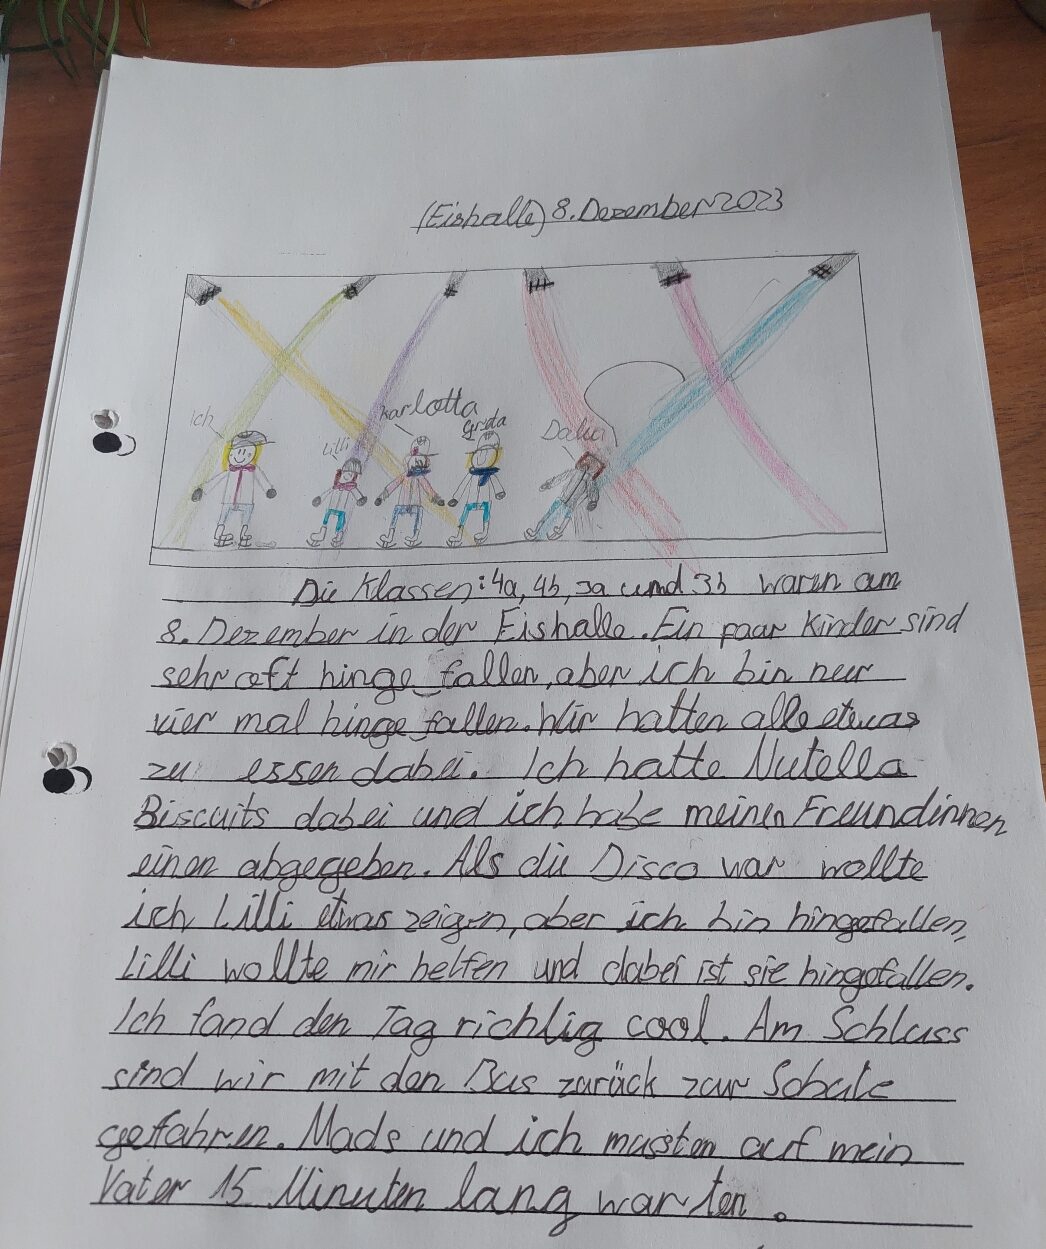 (Eishalle) 8. Dezember 2023
ich
Lilli
Karlotta
Greta
Dalia
Die Klassen: 4a, 4b, 3a und 3b waren am
8. Dezember in der Eishalle. Ein paar Kinder sind
sehr oft hinge_fallen, aber ich bin nur
vier mal hinge_fallen. Wir hatten alle etwas
zu essen dabei. Ich hatte Nutella
Biscuits dabei und ich habe meinen Freundinnen
einen abgegeben. Als die Disco war wollte
ich Lilli etwas zeigen, aber ich bin hingefallen,
Lilli wollte mir helfen und dabei ist sie hingefallen.
Ich fand den Tag richtig cool. Am Schluss
sind wir mit den Bus zurück zur Schule
gefahren. Mads und ich mussten auf mein
Vater 15 Minuten lang warten.